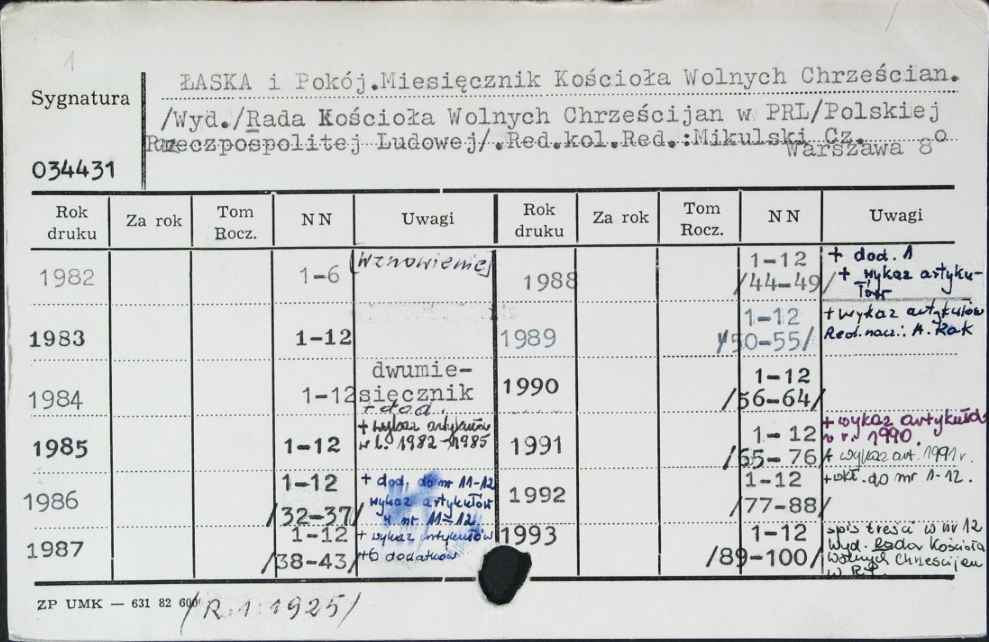 1
ŁASKA i Pokój.Miesięcznik Kościoła Wolnych Chrześcian.
Sygnatura
/Wyd./Rada Kościoła Wolnych Chrześcijan w PRL/Polskiej
Rzeczpospolitej Ludowej/.Red.kol.Red.:Mikulski Cz.
Warszawa 8°
034431
Rok druku Za rok Tom Rocz. NN Uwagi Rok druku Za rok Tom Rocz. NN Uwagi
1982 1-6 [wznowienie]
1983 1-12
1984 1-12 dwumie-
sięcznik
+ dod.
1985 1-12 + wykaz artykułów
w l. 1982-1985
1986 1-12
/32-37/ + dod. do nr 11-12
wykaz artykułów
w nr 11-12
1987 1-12
/38-43/ + wykaz artykułów
+6 dodatków
1988 1-12
/44-49/ + dod. 1
+ wykaz artyku-
łów
1989 1-12
/50-55/ + wykaz artykułów
Red.nacz.: A. Rak
1990 1-12
/56-64/
1991 1-12
/65-76/ + wykaz artykułów
w r. 1990.
+ wykaz art. 1991 r.
1992 1-12
/77-88/ + wkł. do nr 1-12.
1993 1-12
/89-100/ spis treści w nr 12
Wyd. Rada Kościoła
Wolnych Chrześcijan
w RP.
ZP UMK — 631 82 600
/R.1:1925/